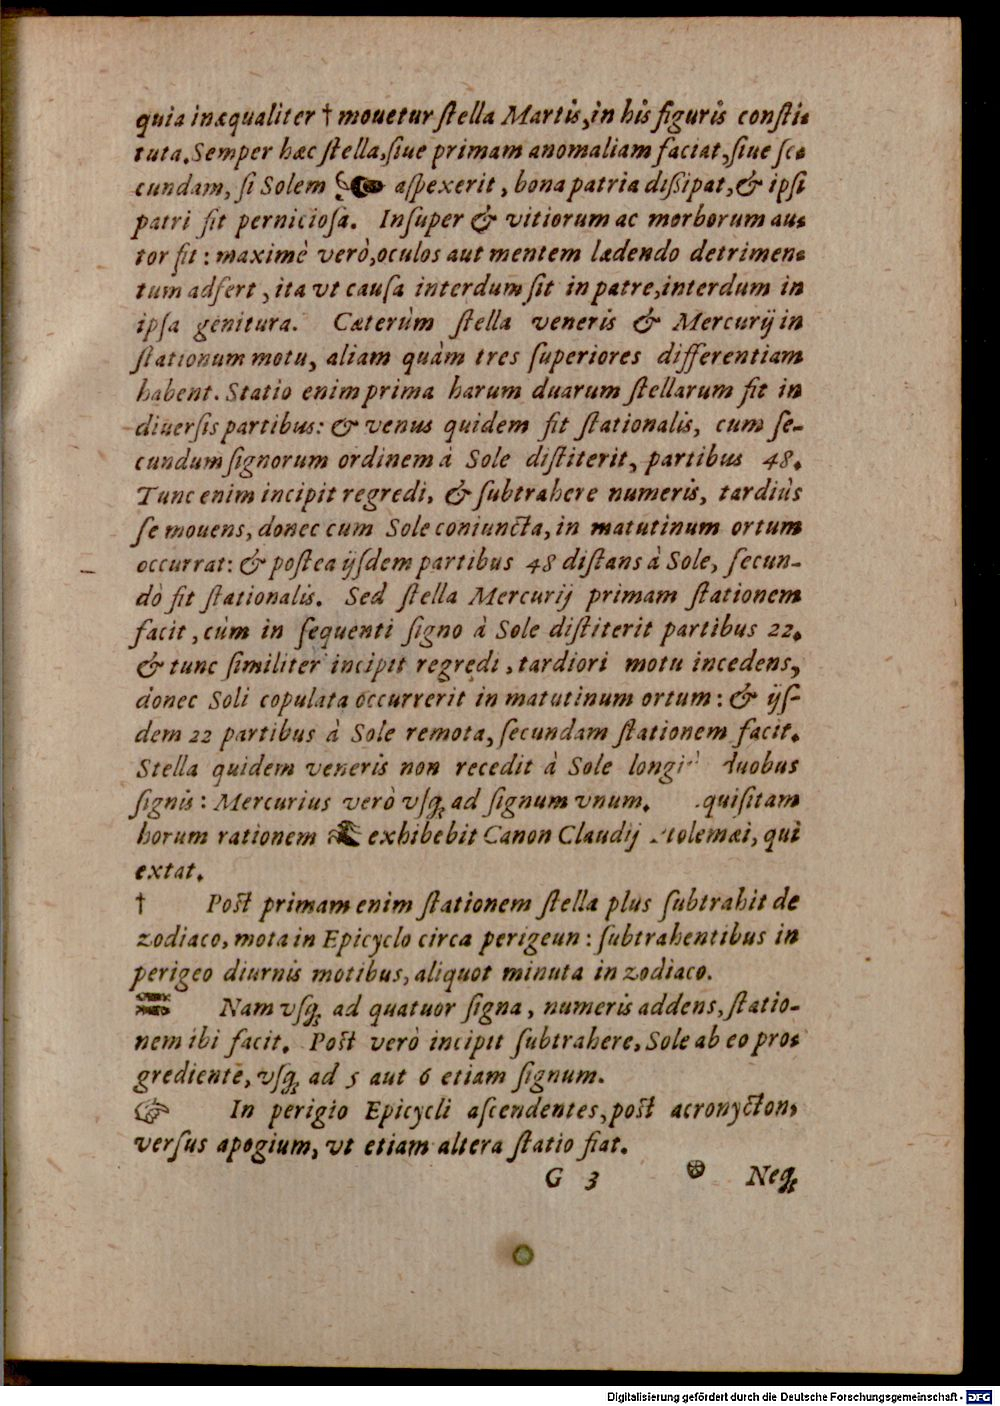 quia inæqualiter † mouetur ſtella Martis, in his figuris conſti-
tuta. Semper hæc ſtella, ſiue primam anomaliam faciat, ſiue ſe-
cundam, ſi Solem aſpexerit, bona patria dißipat, & ipſi
patri fit pernicioſa. Inſuper & vitiorum ac morborum au-
tor fit: maximè verò, oculos aut mentem lædendo detrimen-
tum adfert, ita vt cauſa interdum ſit in patre, interdum in
ipſa genitura. Cæterùm ſtella veneris & Mercurij in
ſtationum motu, aliam quàm tres ſuperiores differentiam
habent. Statio enim prima harum duarum ſtellarum fit in
diuerſis partibus: & venus quidem fit ſtationalis, cum ſe-
cundum ſignorum ordinem à Sole diſtiterit, partibus 48.
Tunc enim incipit regredi, & ſubtrahere numeris, tardiùs
ſe mouens, donec cum Sole coniuncta, in matutinum ortum
occurrat: & poſtea ijſdem partibus 48 diſtans à Sole, ſecun-
dò fit ſtationalis. Sed ſtella Mercurij primam ſtationem
facit, cùm in ſequenti ſigno à Sole diſtiterit partibus 22.
& tunc ſimiliter incipit regredi, tardiori motu incedens,
donec Soli copulata occurrerit in matutinum ortum: & ijſ-
dem 22 partibus à Sole remota, ſecundam ſtationem facit.
Stella quidem veneris non recedit à Sole duobus
ſignis: Mercurius verò vſq; ad ſignum vnum. quiſitam
horum rationem exhibebit Canon Claudij tolemæi, qui
extat.
† Poſt primam enim ſtationem ſtella plus ſubtrahit de
zodiaco, mota in Epicyclo circa perigeun: ſubtrahentibus in
perigeo diurnis motibus, aliquot minuta in zodiaco.
Nam vſq; ad quatuor ſigna, numeris addens, ſtatio-
nem ibi facit. Poſt verò incipit ſubtrahere, Sole ab eo pro-
grediente, vſq; ad 5 aut 6 etiam ſignum.
☞ In perigio Epicycli aſcendentes, poſt acronycton,
verſus apogium, vt etiam altera ſtatio fiat.
G 3 Neq;
Digitalisierung gefördert durch die Deutsche Forschungsgemeinschaft - DFG